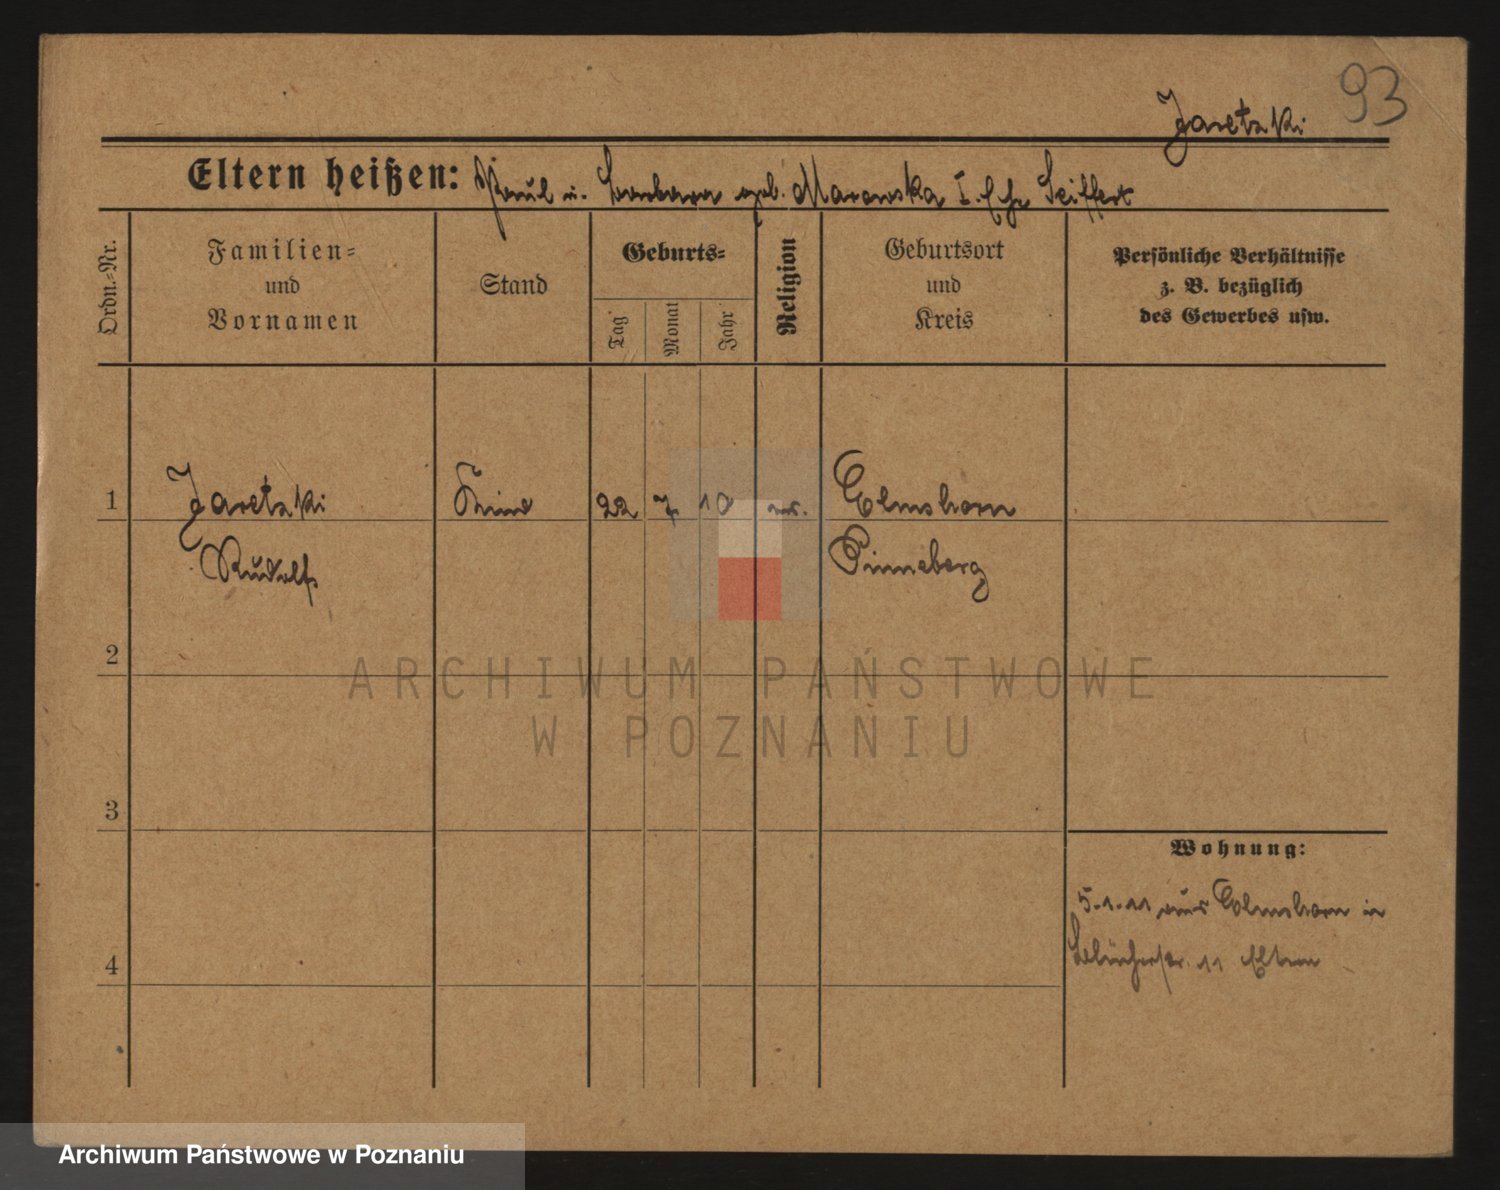 93
Jaretzki
Eltern heißen: Paul u. Barbara geb. Marowska I. Ehe Seiffert
Ordn.=Nr.
Familien=
und
Vornamen
Stand
Geburts=
Tag
Monat
Jahr
Religion
Geburtsort
und
Kreis
Persönliche Verhältnisse
z. B. bezüglich
des Gewerbes usw.
1 Jaretzki Kind 22 7 10 ev. Elmshorn
Rudolf Pinneberg
2
ARCHIWUM PAŃSTWOWE
W POZNANIU
3
Wohnung:
5.1.11 aus Elmshorn in
4 Blücherstr. 11 Eltern
Archiwum Państwowe w Poznaniu